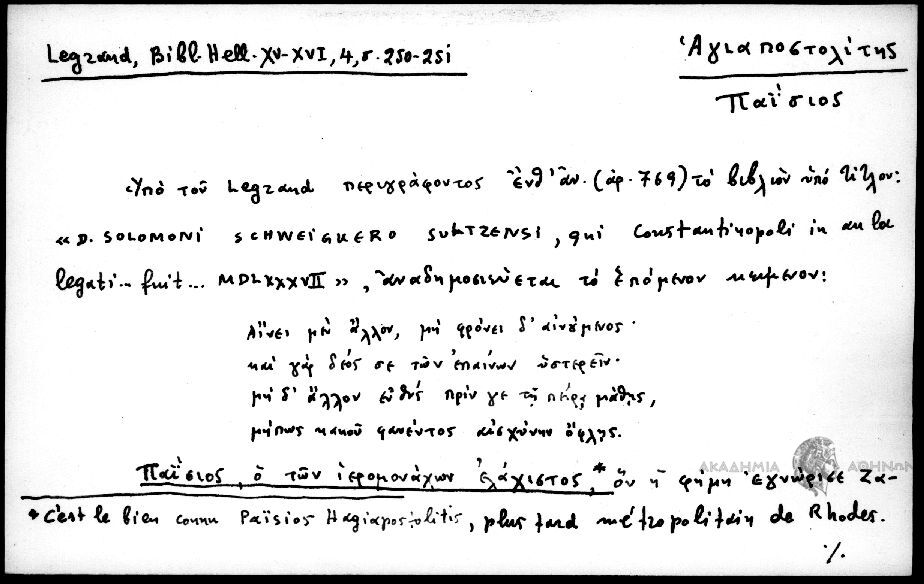 Legrand, Bibl. Hell. XV-XVI, 4, σ. 250-251
Ἁγιαποστολίτης
Παΐσιος
Ὑπὸ τοῦ Legrand περιγράφοντος ἐνθ' ἀν. (ἀρ. 769) τὸ βιβλίον ὑπὸ τίτλον:
« D. SOLOMONI SCHWEIGKERO SULTZENSI, qui Constantinopoli in aula
legati... fuit... MDLXXXVII », ἀναδημοσιεύεται τὸ ἑπόμενον κείμενον:
Αἴνει μὲν ἄλλον, μὴ φρόνει δ' αἰνούμενος·
καὶ γὰρ δέος σε τῶν ἐπαίνων ὑστερεῖν·
μὴ δ' ἄλλον εὐθὺς πρὶν γε τῇ πείρᾳ μάθῃς,
μήπως κακοῦ φανέντος αἰσχύνην ὄφλῃς.
Παΐσιος, ὁ τῶν ἱερομονάχων ἐλάχιστος,* ὃν ἡ φήμη ἐγνώρισε Ζα-
* C'est le bien connu Païsios Hagiapostolitis, plus tard métropolitain de Rhodes.
./.
ΑΚΑΔΗΜΙΑ ΑΘΗΝΩΝ